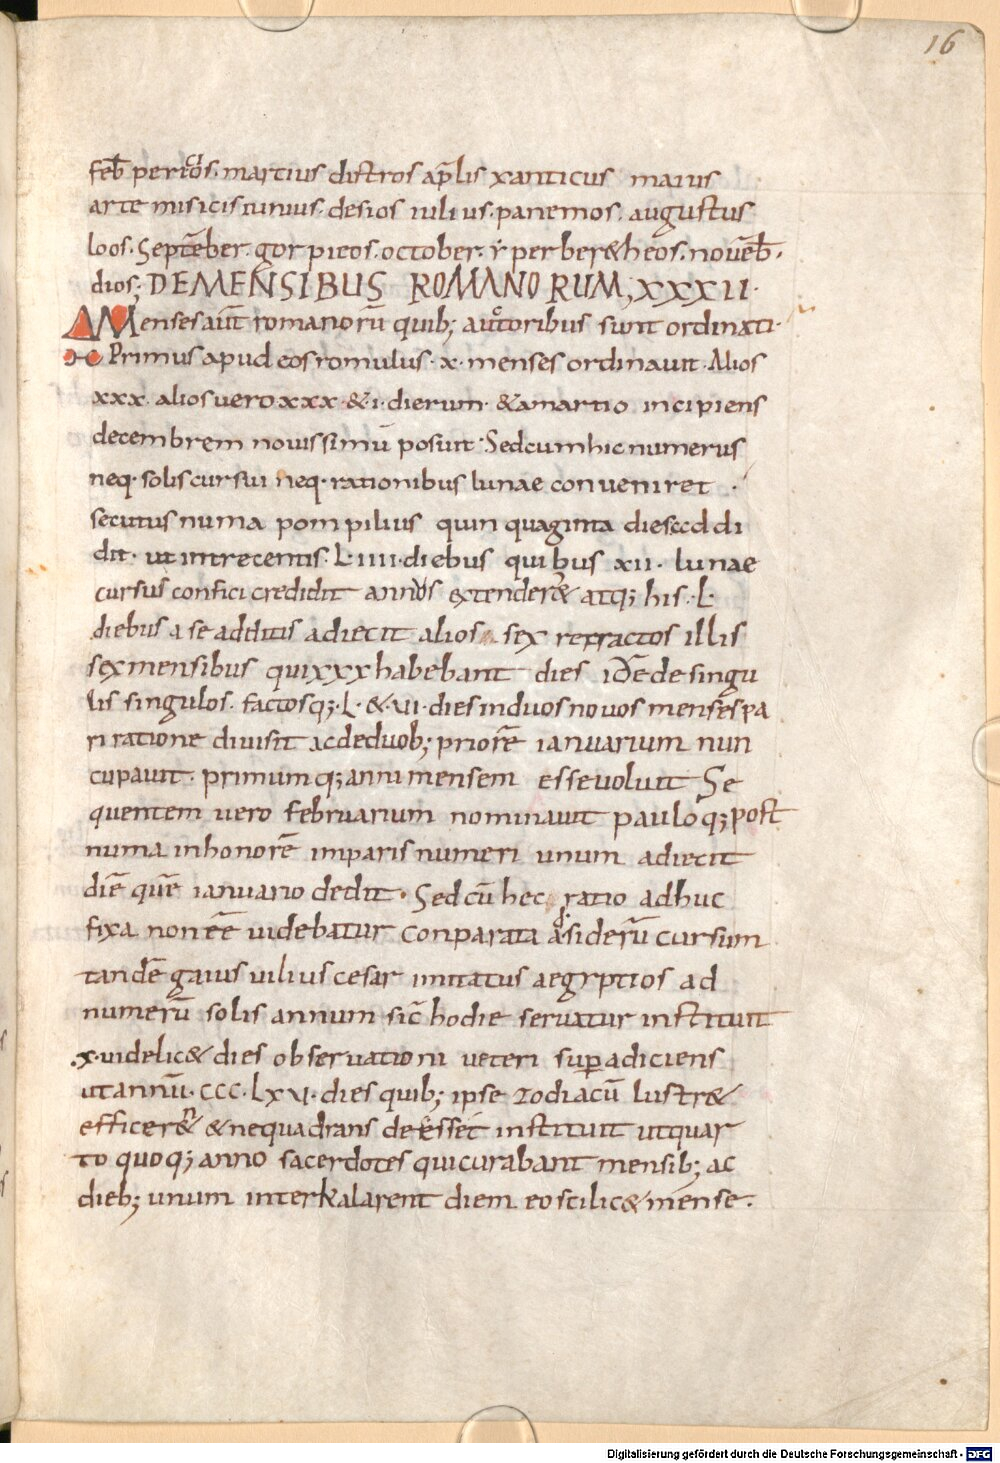 16
feb̄ peritios. martius distros ap̄lis xanticus maius
artemisicis iunius. desios iulius. panemos. augustus
loos. Septēber. gorpieos. october. yperber&heos. novēb̄.
dios; DE MENSIBUS ROMANORUM; XXXII.
Menses aūt romanorū quib; auctoribus sunt ordinati.
Primus apud eos romulus. x. menses ordinavit. Alios
xxx. alios vero xxx. &. i. dierum. & a martio incipiens
decembrem novissimū posuit. Sed cum hic numerus
neq. solis cursui neq. rationibus lunae conveniret.
secutus numa pompilius quinquaginta dies ccddi
dit. ut in trecentis. L. IIII. diebus quibus xii. lunae
cursus confici credidit annos extender& atq; his. L.
diebus a se additis adiecit alios sex retractos illis
sex mensibus qui xxx habebant dies idē de singu
lis singulos. factosq; L. &. vii. dies in duos novos menses pa
ri ratione divisit ac de duob; priorē ianuarium nun
cupavit. primumq; anni mensem esse voluit Se
quentem vero februarium nominavit pauloq; post
numa in honorē imparis numeri unum adiecit
diē quē ianuario dedit. Sed cū hec ratio adhuc
fixa non eē videbatur conparata ad siderū cursum
tandē gaius iulius cesar imitatus aegyptios ad
numerū solis annum sic̄ hodie servatur instituit
.x. videlic& dies observationi veteri superadiciens
ut annū. CCC. LXVI. dies quib; ipse zodiacū lustr&
efficer& & ne quadrans deesset instituit ut quar
to quoq; anno sacerdotes qui curabant mensib; ac
dieb; unum interkalarent diem eo scilic& mense.
Digitalisierung gefördert durch die Deutsche Forschungsgemeinschaft - DFG